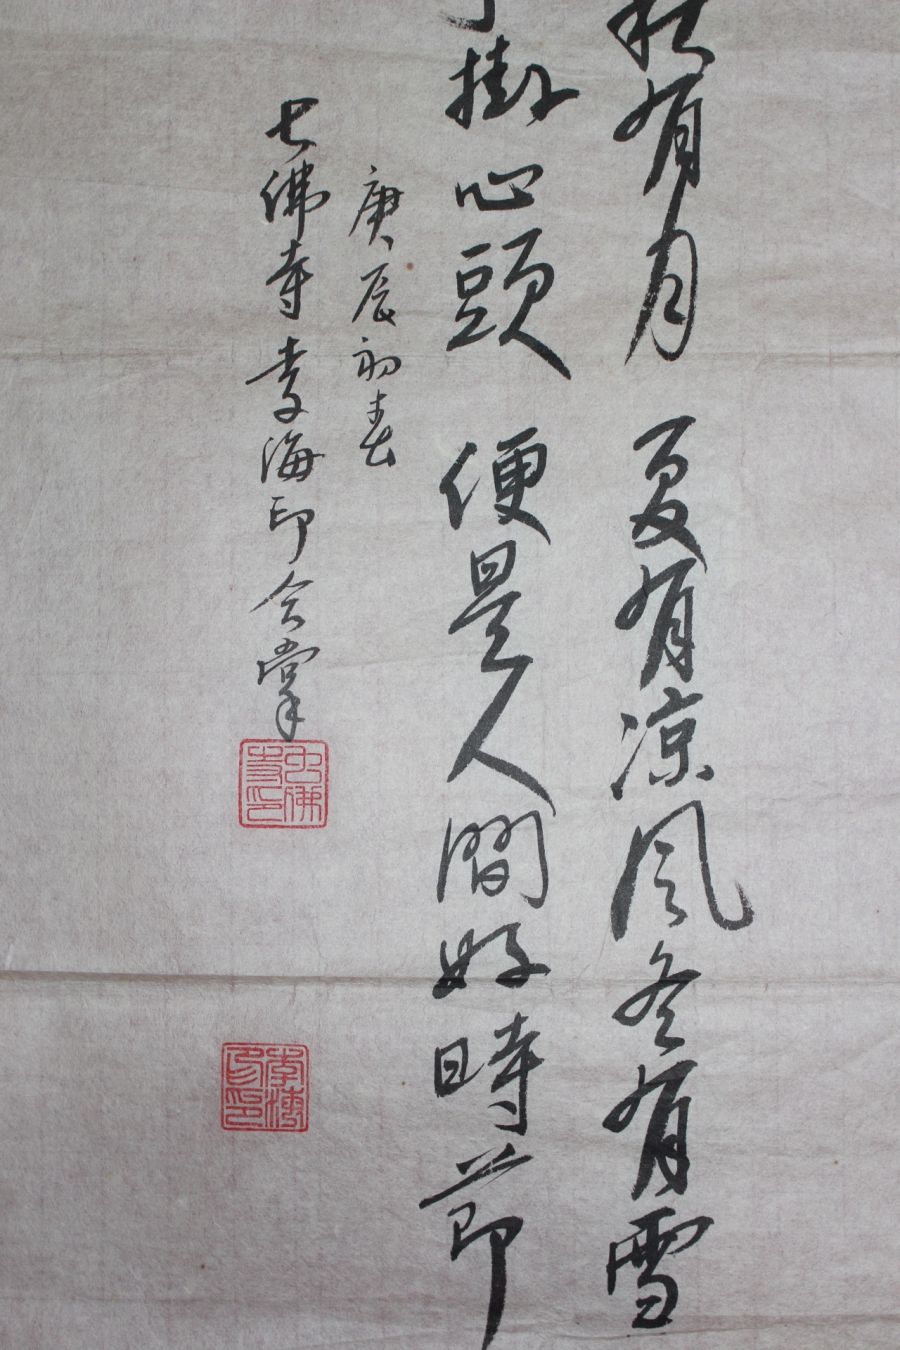 秋有月 夏有凉风冬有雪
掛心頭 便是人間好時節
庚辰初春
七佛寺李海印合掌